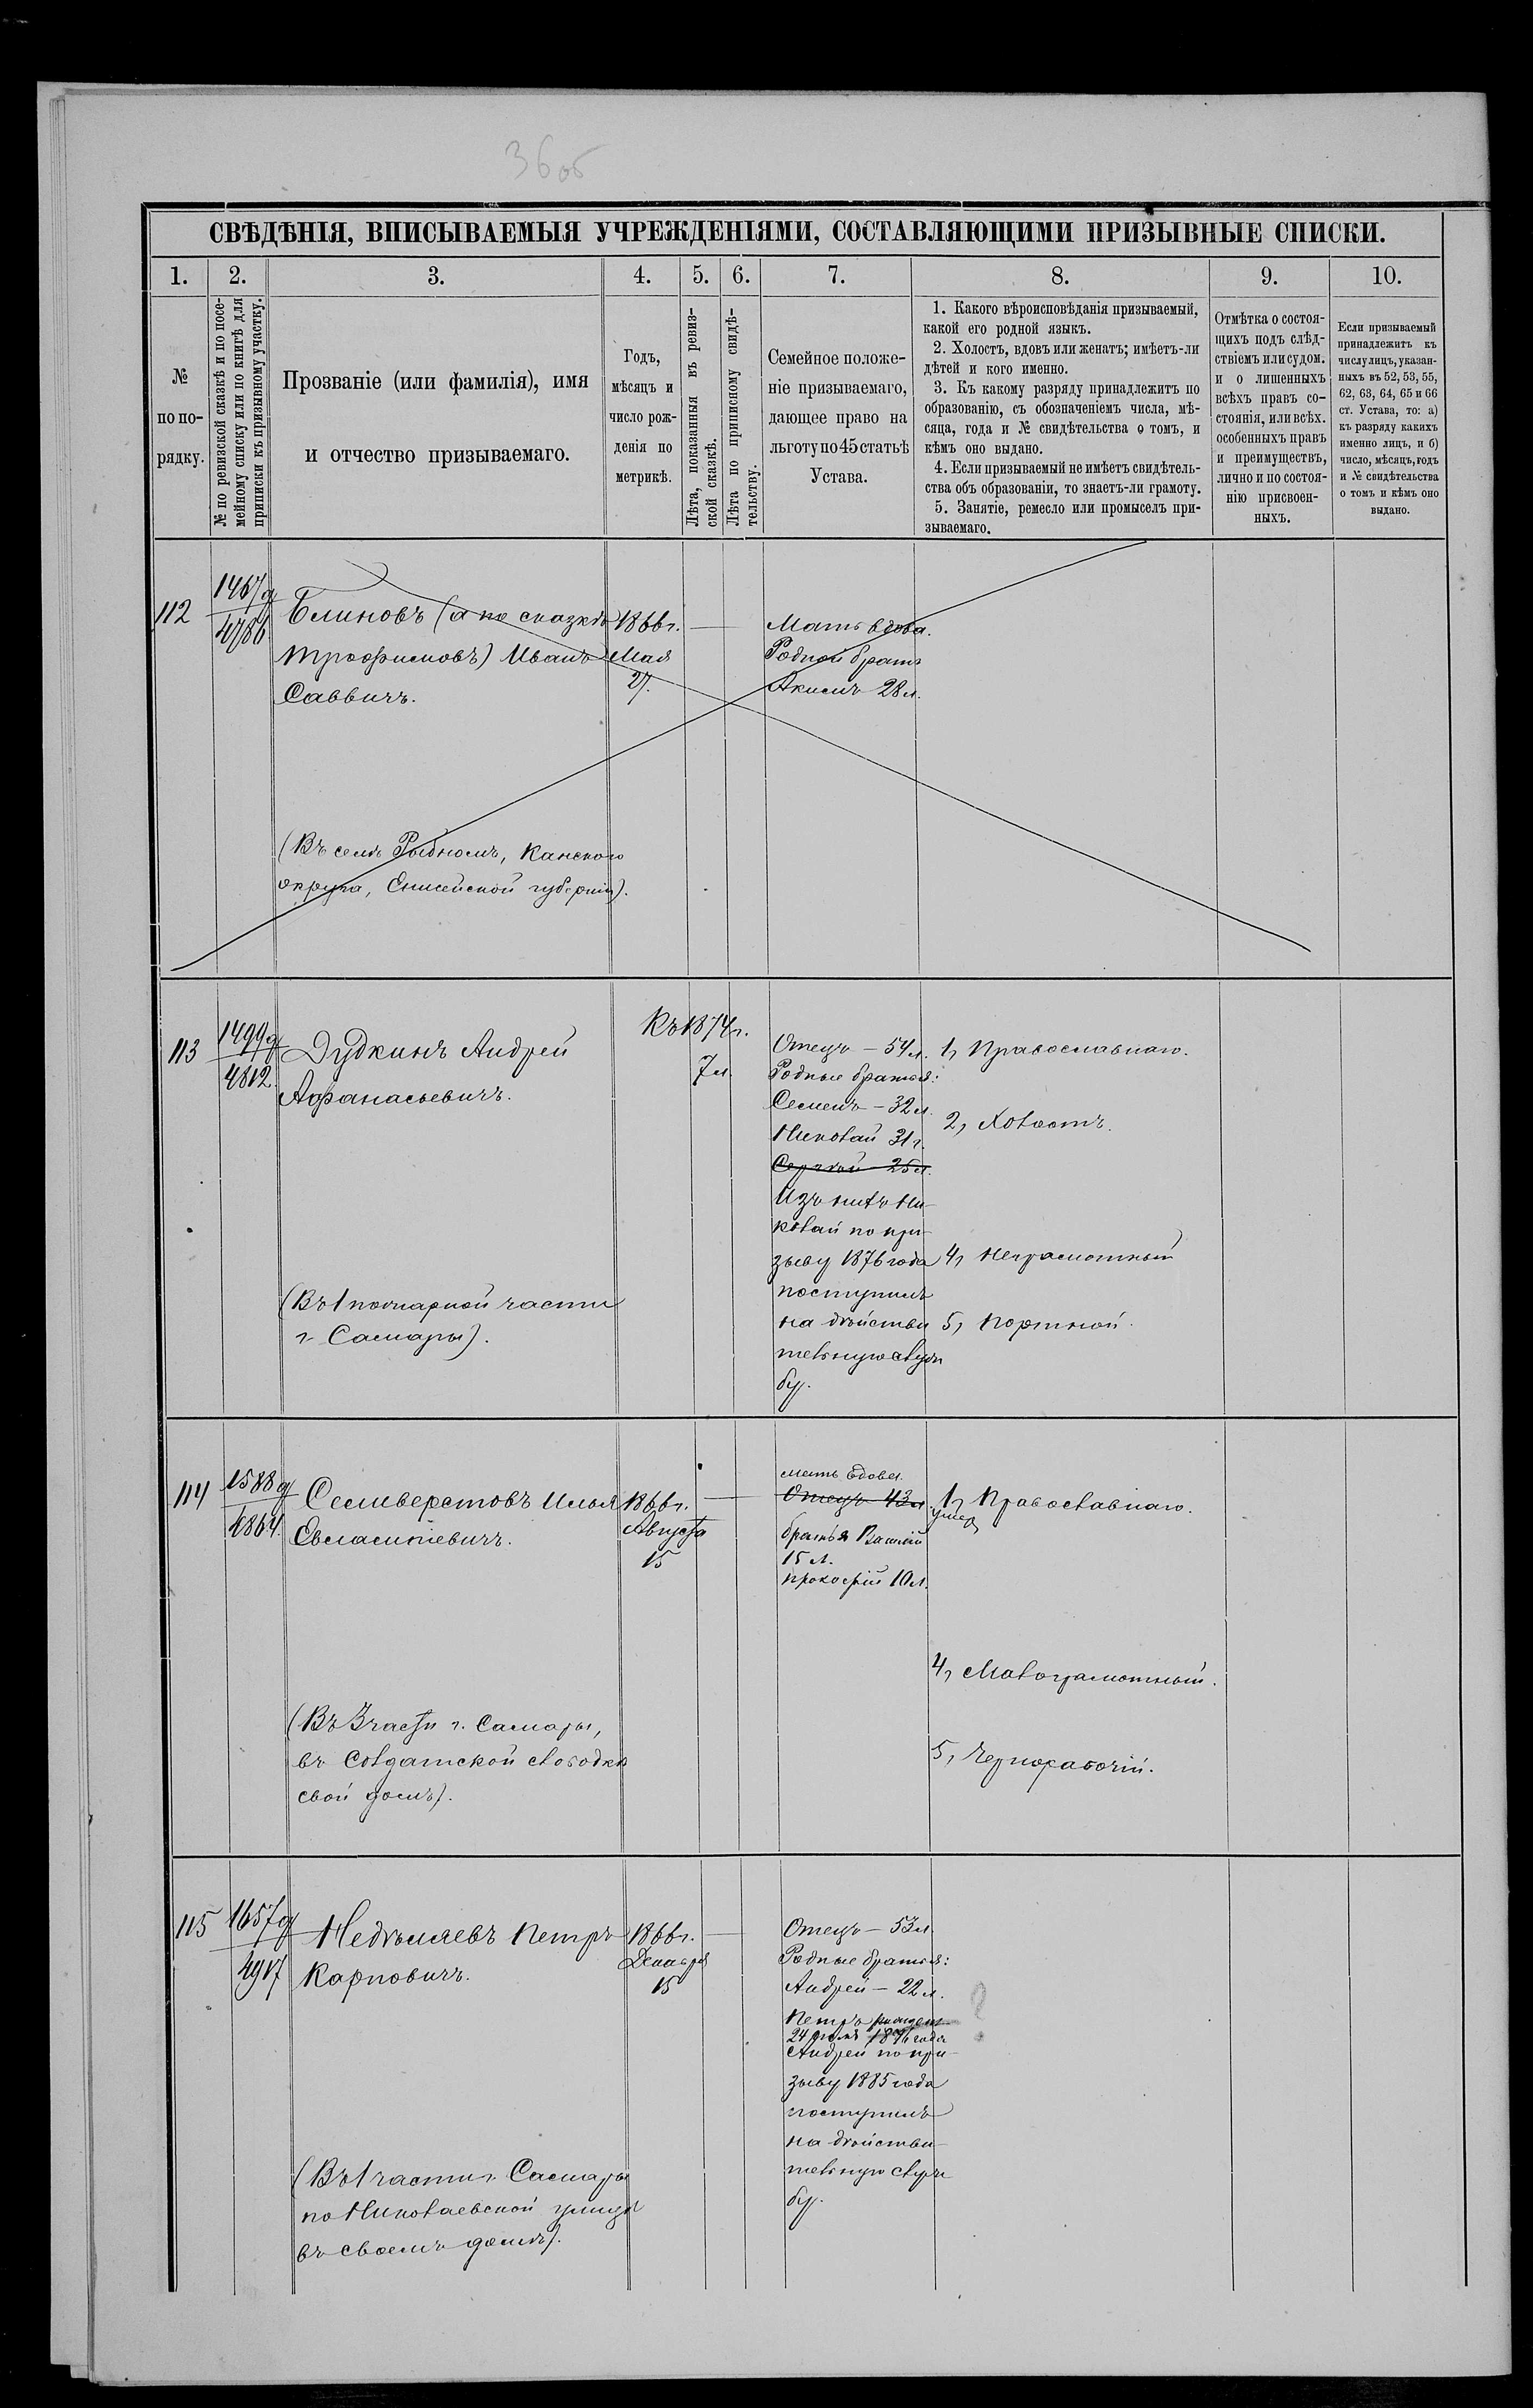 36об
СВѢДѢНІЯ, ВПИСЫВАЕМЫЯ УЧРЕЖДЕНІЯМИ, СОСТАВЛЯЮЩИМИ ПРИЗЫВНЫЕ СПИСКИ.
1.
2.
3.
4.
5.
6.
7.
8.
9.
10.
№
по по-
рядку.
№ по ревизской сказкѣ и по посе-
мейному списку или по книгѣ для
приписки къ призывному участку.
Прозваніе (или фамилія), имя
и отчество призываемаго.
Годъ,
мѣсяцъ и
число рож-
денія по
метрикѣ.
Лѣта, показанныя въ ревиз-
ской сказкѣ.
Лѣта по приписному свидѣ-
тельству.
Семейное положе-
ніе призываемаго,
дающее право на
льготу по 45 статьѣ
Устава.
1. Какого вѣроисповѣданія призываемый,
какой его родной языкъ.
2. Холостъ, вдовъ или женатъ; имѣетъ-ли
дѣтей и кого именно.
3. Къ какому разряду принадлежитъ по
образованію, съ обозначеніемъ числа, мѣ-
сяца, года и № свидѣтельства о томъ, и
кѣмъ оно выдано.
4. Если призываемый не имѣетъ свидѣтель-
ства объ образованіи, то знаетъ-ли грамоту.
5. Занятіе, ремесло или промыселъ при-
зываемаго.
Отмѣтка о состоя-
щихъ подъ слѣд-
ствіемъ или судом.
и о лишенныхъ
всѣхъ правъ со-
стоянія, или всѣх.
особенныхъ правъ
и преимуществъ,
лично и по состоя-
нію присвоен-
ныхъ.
Если призываемый
принадлежитъ къ
числу лицъ, указан-
ныхъ въ 52, 53, 55,
62, 63, 64, 65 и 66
ст. Устава, то: а)
къ разряду какихъ
именно лицъ, и б)
число, мѣсяцъ, годъ
и № свидѣтельства
о томъ и кѣмъ оно
выдано.
112
1467д
4786
Блиновъ (а по сказкѣ
Трофимовъ) Иванъ
Саввичъ.
(Въ селѣ Рыбномъ, Канскаго
округа, Енисейской губерніи).
1866г.
Мая
27.
Мать вдова.
Родной братъ
Акимъ 28 л.
113
1499д
4812
Дудкинъ Андрей
Афанасьевичъ.
(Въ 1 пожарной части
г. Самары).
Къ 1874г.
7 л.
Отецъ – 54 л.
Родные братья:
Семенъ – 32 л.
Николай 31 г.
Сергѣй 25 л.
Изъ нихъ Ни-
колай по при-
зыву 1876 года
поступилъ
на дѣйстви
тельную служ
бу.
1, Православнаго.
2, Холостъ.
4, Неграмотный
5, Портной.
114
1588д
4864
Селиверстовъ Илья
Евлампіевичъ.
(Въ 3 части г. Самары,
въ Солдатской слободкѣ
свой домъ).
1866г.
Августа
15
мать вдова
Отецъ 43 л.
умер
братья
15 л.
Прокофій 10 л.
1, Православнаго.
4, Малограмотный.
5, Чернорабочій.
115
1657д
4917
Недѣляевъ Петръ
Карповичъ.
(Въ 1 части г. Самары
по Николаевской улицѣ
въ своемъ домѣ).
1866г.
Декабря
15
Отецъ – 53 л.
Родные братья:
Андрей – 22 л.
Петръ
24 1876 года
Андрей по при-
зыву 1885 года
поступилъ
на дѣйстви-
тельную служ
бу.
?